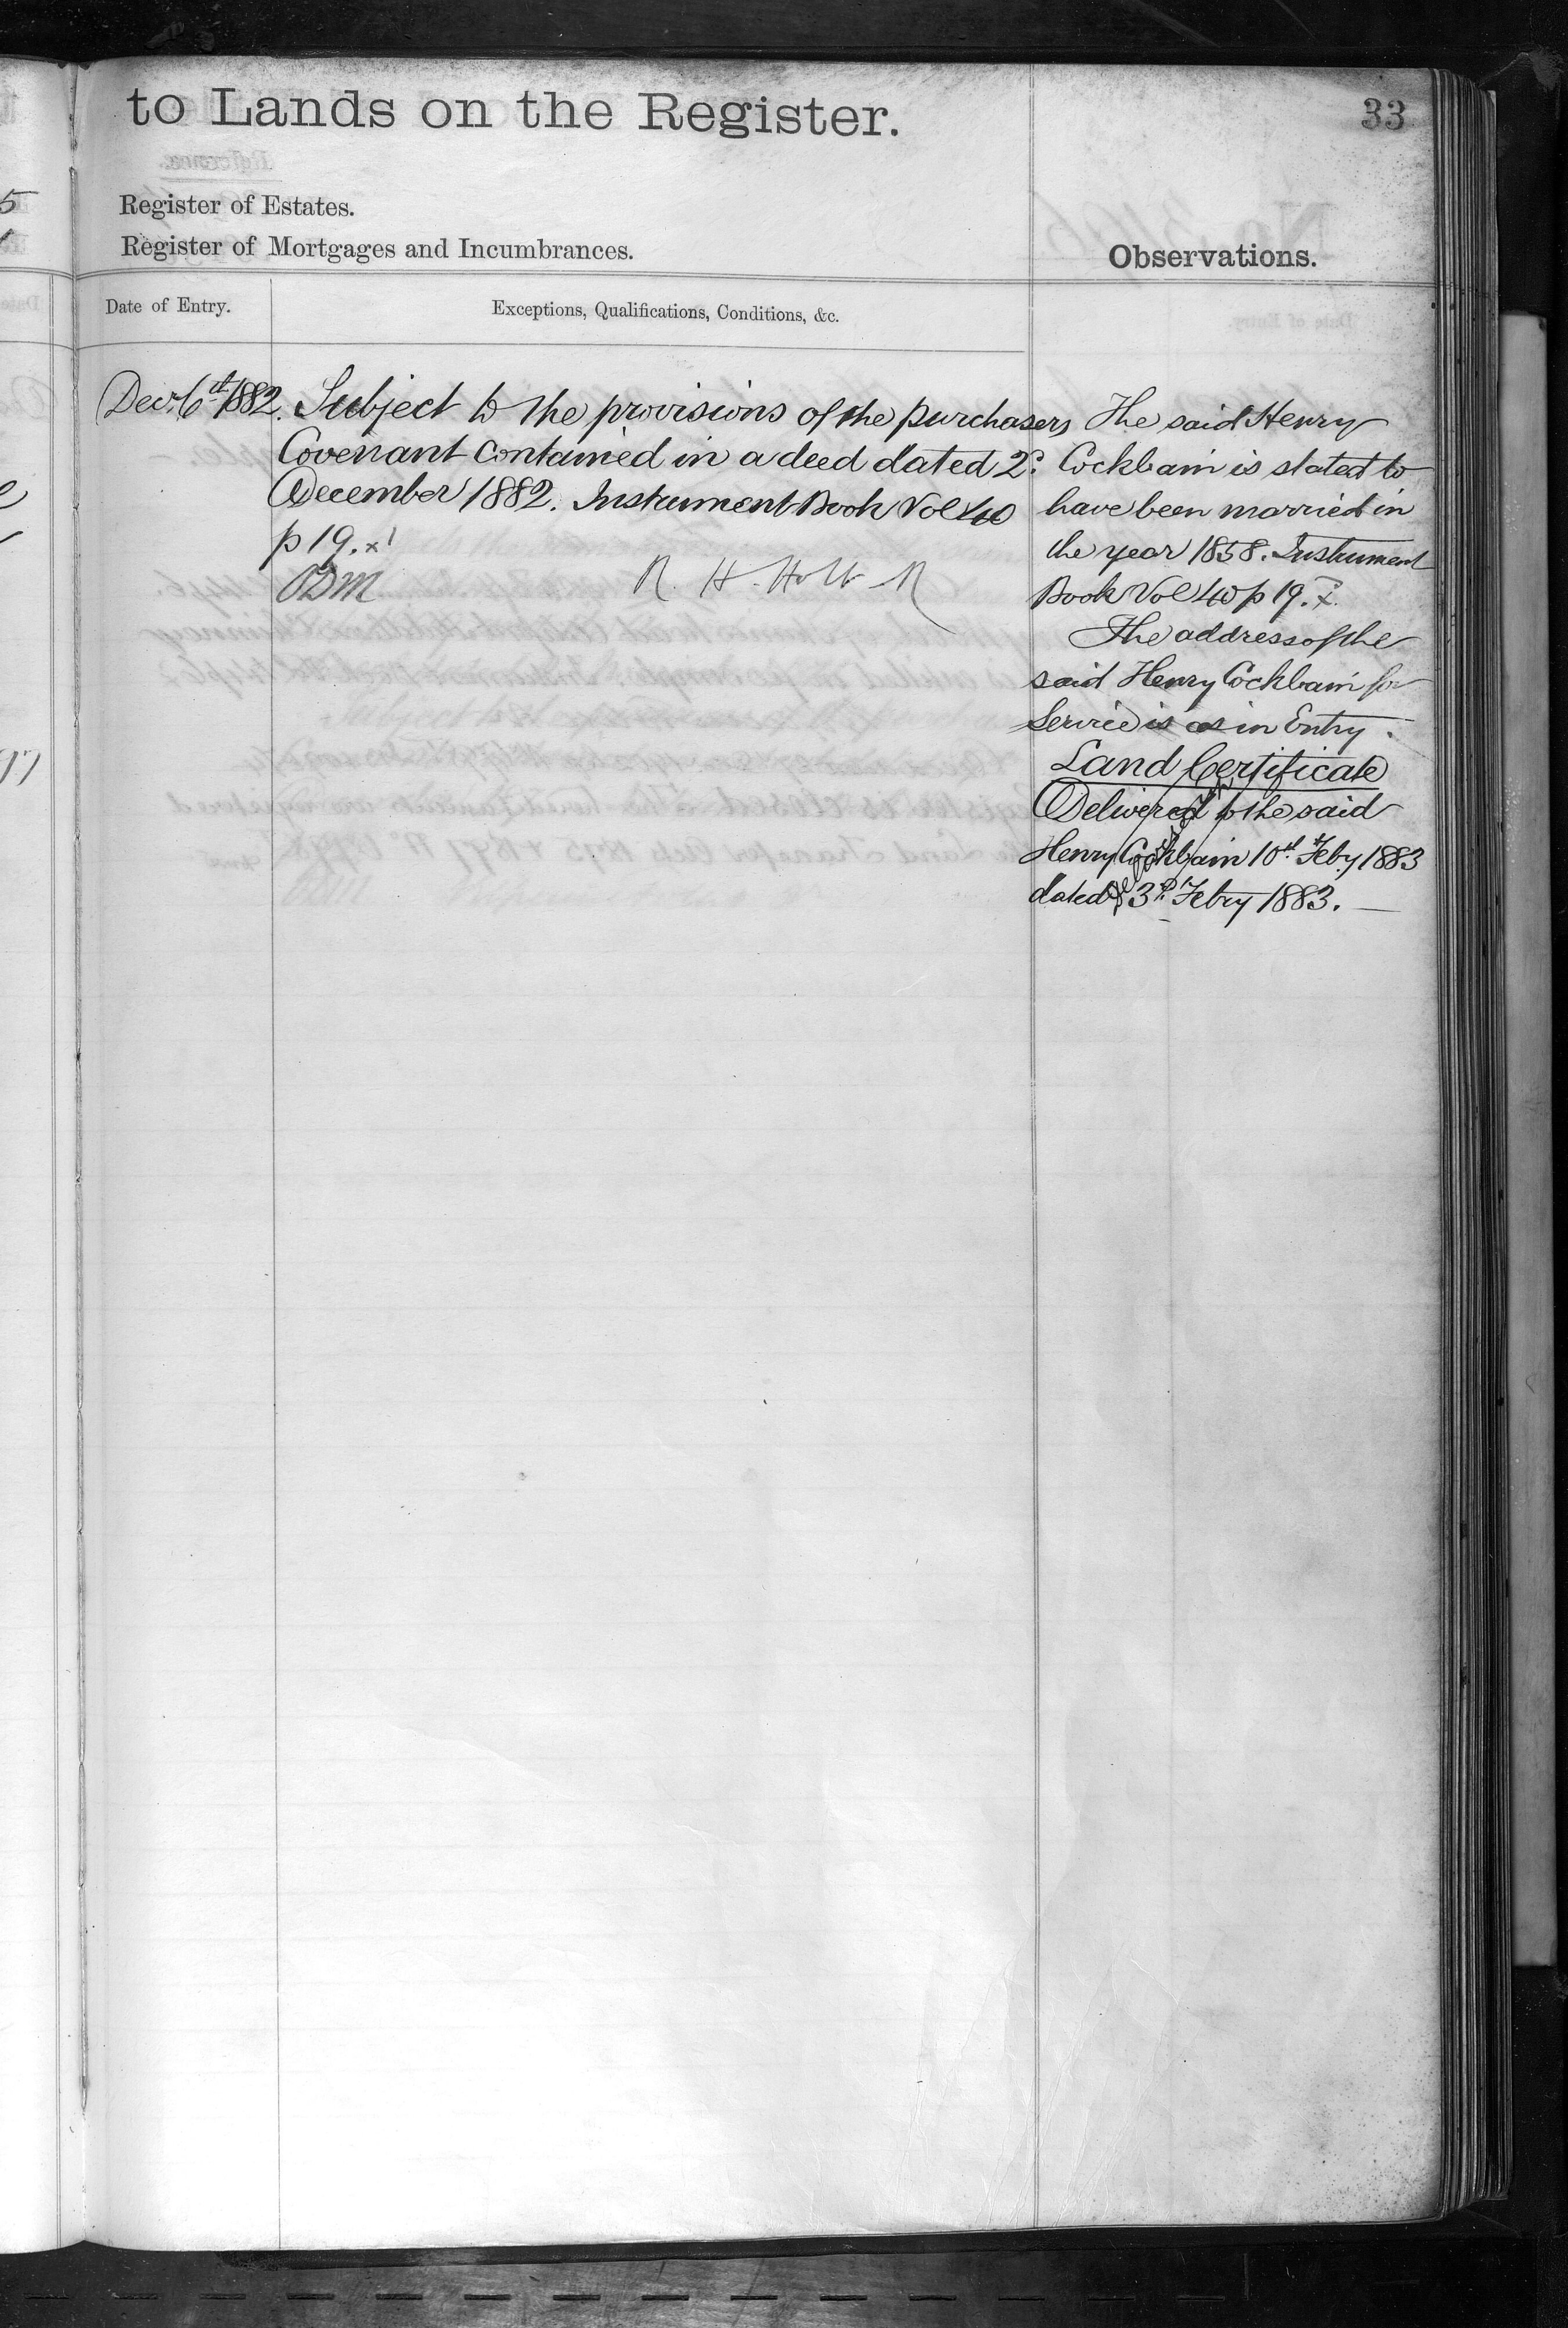 to Lands on the Register.
33
Register of Estates.
Register of Mortgages and Incumbrances.
Observations.
Date of Entry.
Exceptions, Qualifications, Conditions, &c.
Decr. 6th 1882. Subject to the provisions of the purchasers
Covenant contained in a deed dated 2d.
December 1882. Instrument Book Vol 40
p 19. x1
R. H. Holt R
The said Henry
Cockbain is stated to
have been married in
the year 1858. Instrument
Book Vol 40 p 19. x.
The address of the
said Henry Cockbain for
Service is as in Entry.
Land Certificate
Delivered to the said
Henry Cockbain 10th Feby 1883
dated 3rd Febry 1883.